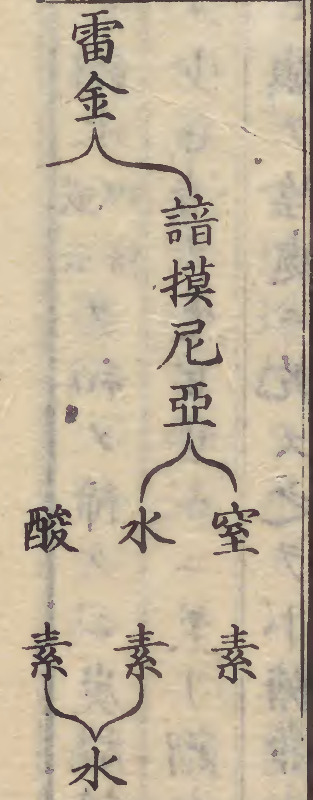 雷金
諳摸尼亞
窒素
水素
酸素
水